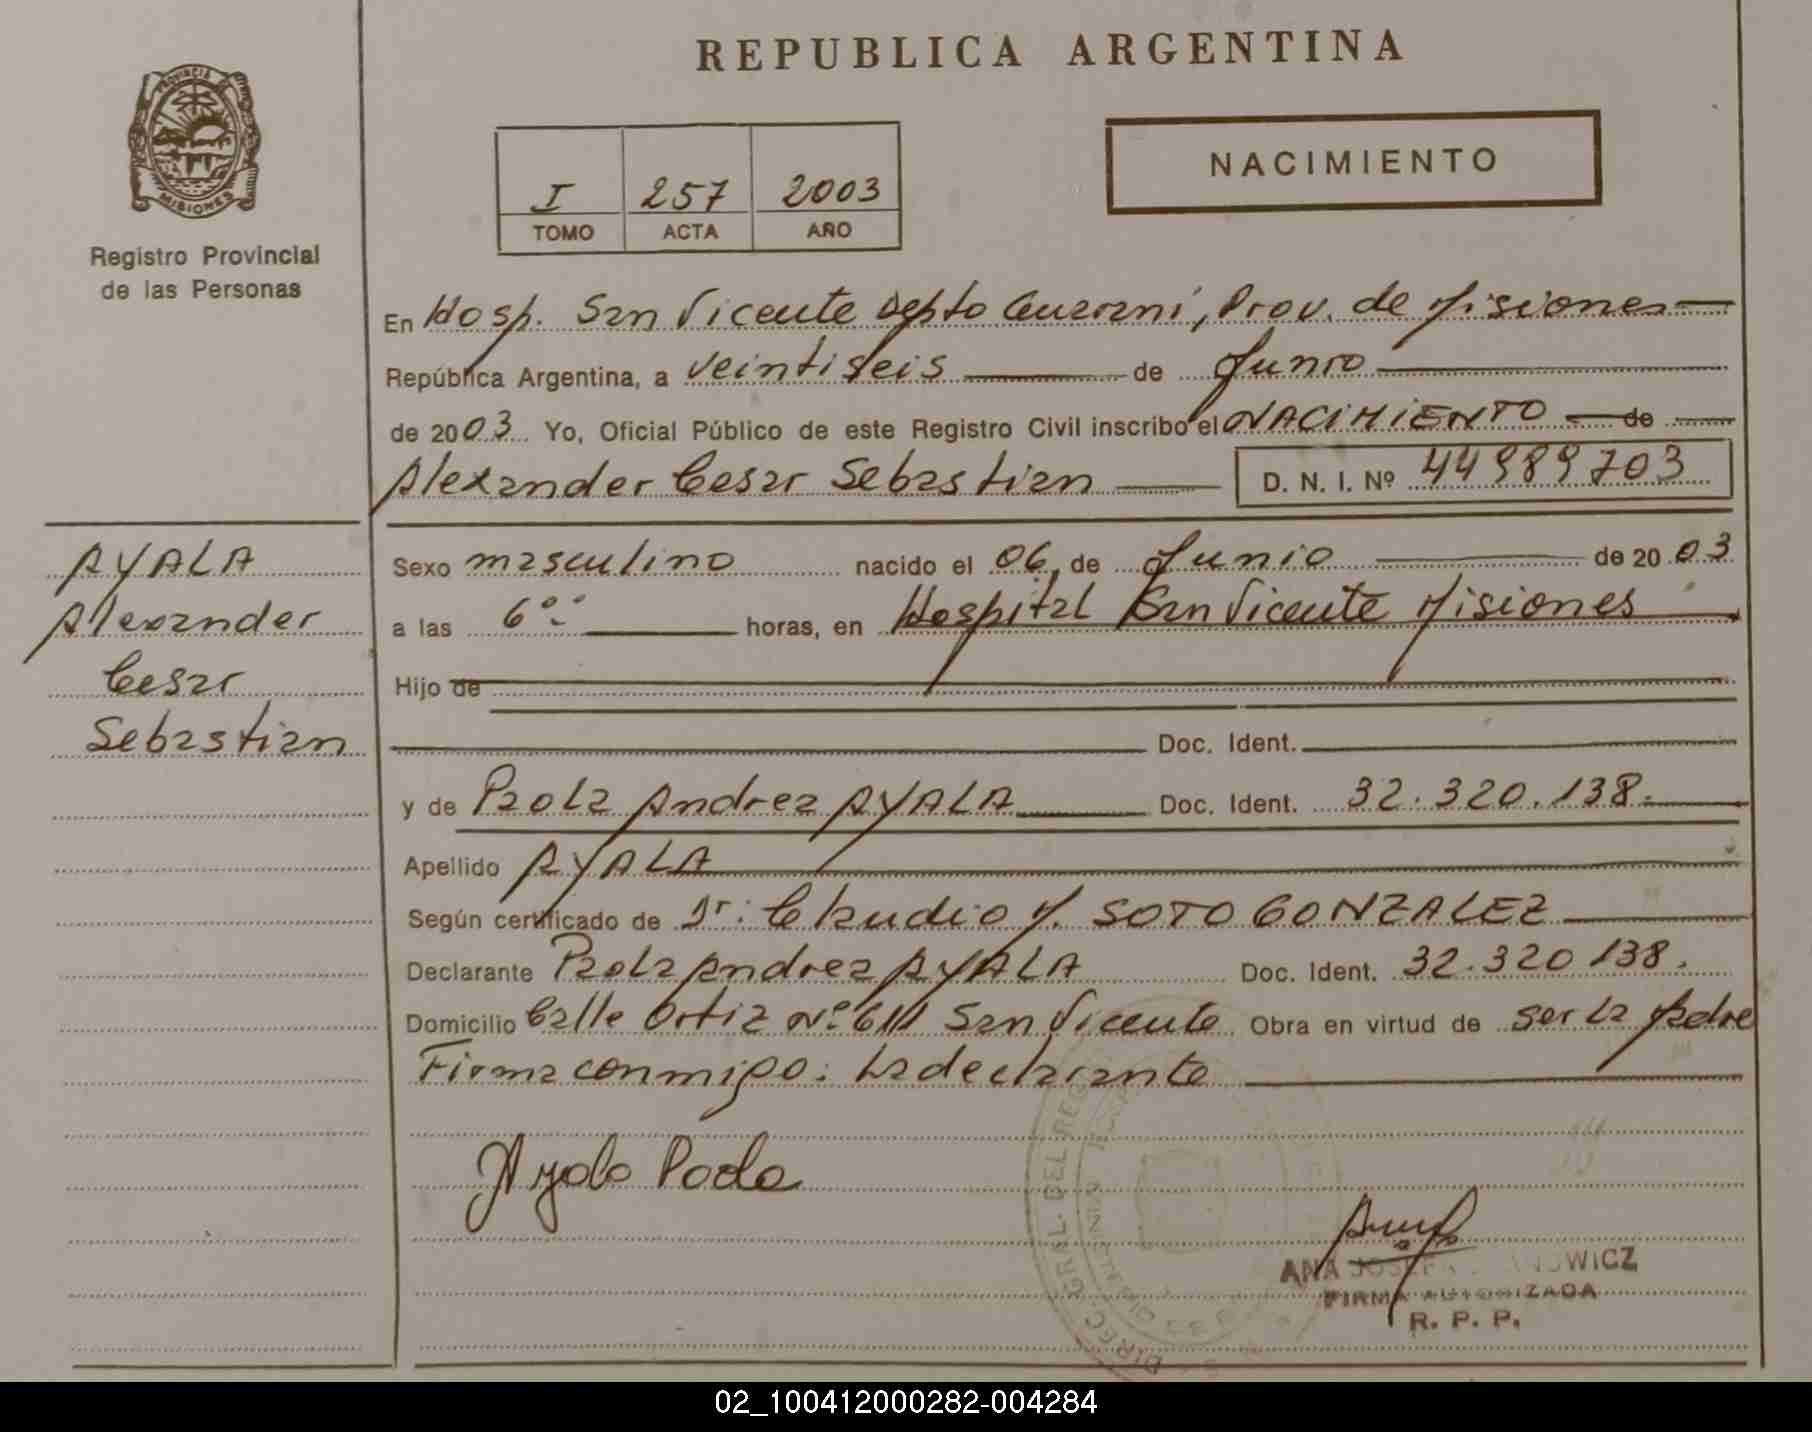 REPUBLICA ARGENTINA
PROVINCIA DE
MISIONES
Registro Provincial
de las Personas
I 257 2003
TOMO ACTA AÑO
NACIMIENTO
En Hosp. San Vicente Depto Guaraní, Prov. de Misiones
República Argentina, a veintiseis de Junio
de 2003 Yo, Oficial Público de este Registro Civil inscribo el NACIMIENTO de
Alexander Cesar Sebastian D. N. I. Nº 44989703
AYALA
Alexander
Cesar
Sebastian
Sexo masculino nacido el 06 de Junio de 2003
a las 6°° horas, en Hospital San Vicente Misiones
Hijo de
Doc. Ident.
y de Paola Andrea AYALA Doc. Ident. 32.320.138.
Apellido AYALA
Según certificado de Dr: Claudio M. SOTO GONZALEZ
Declarante Paola Andrea AYALA Doc. Ident. 32.320 138.
Domicilio Calle Ortiz Nº San Vicente Obra en virtud de ser la Madre
Firma conmigo: La declarante
Ayala Paola
DIREC. GRAL. DEL REG
ANA WICZ
FIRMA AUTORIZADA
R. P. P.
02_100412000282-004284